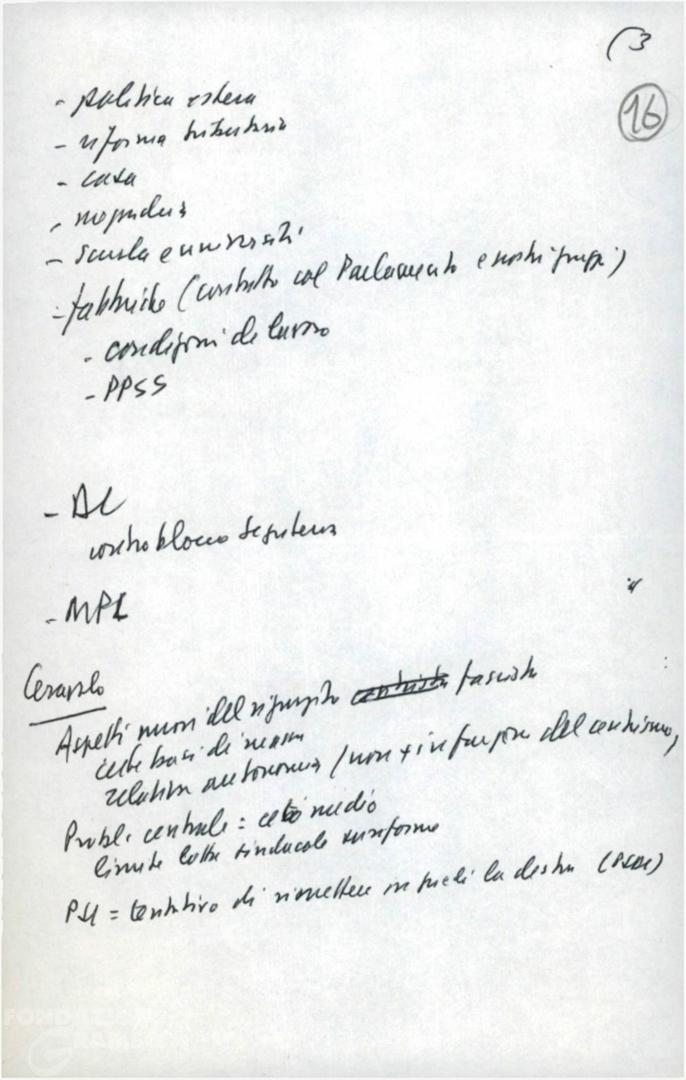 (3
16
- politica estera
- riforma tributaria
- casa
-
- scuola e università
- fabbriche (contatto col Parlamento e nostri gruppi)
- condizioni di lavoro
- PPSS
- DC
contro blocco
- MPL
Ceravolo
Aspetti nuovi del rigurgito fascista
certe basi di massa
relativa autonomia (non + in funzione del centrismo)
Probl. centrale = ceto medio
limite lotta sindacale riforme
PSI = tentativo di rimettere in piedi la destra (PSDI)
FONDAZIONE
GRAMSCI